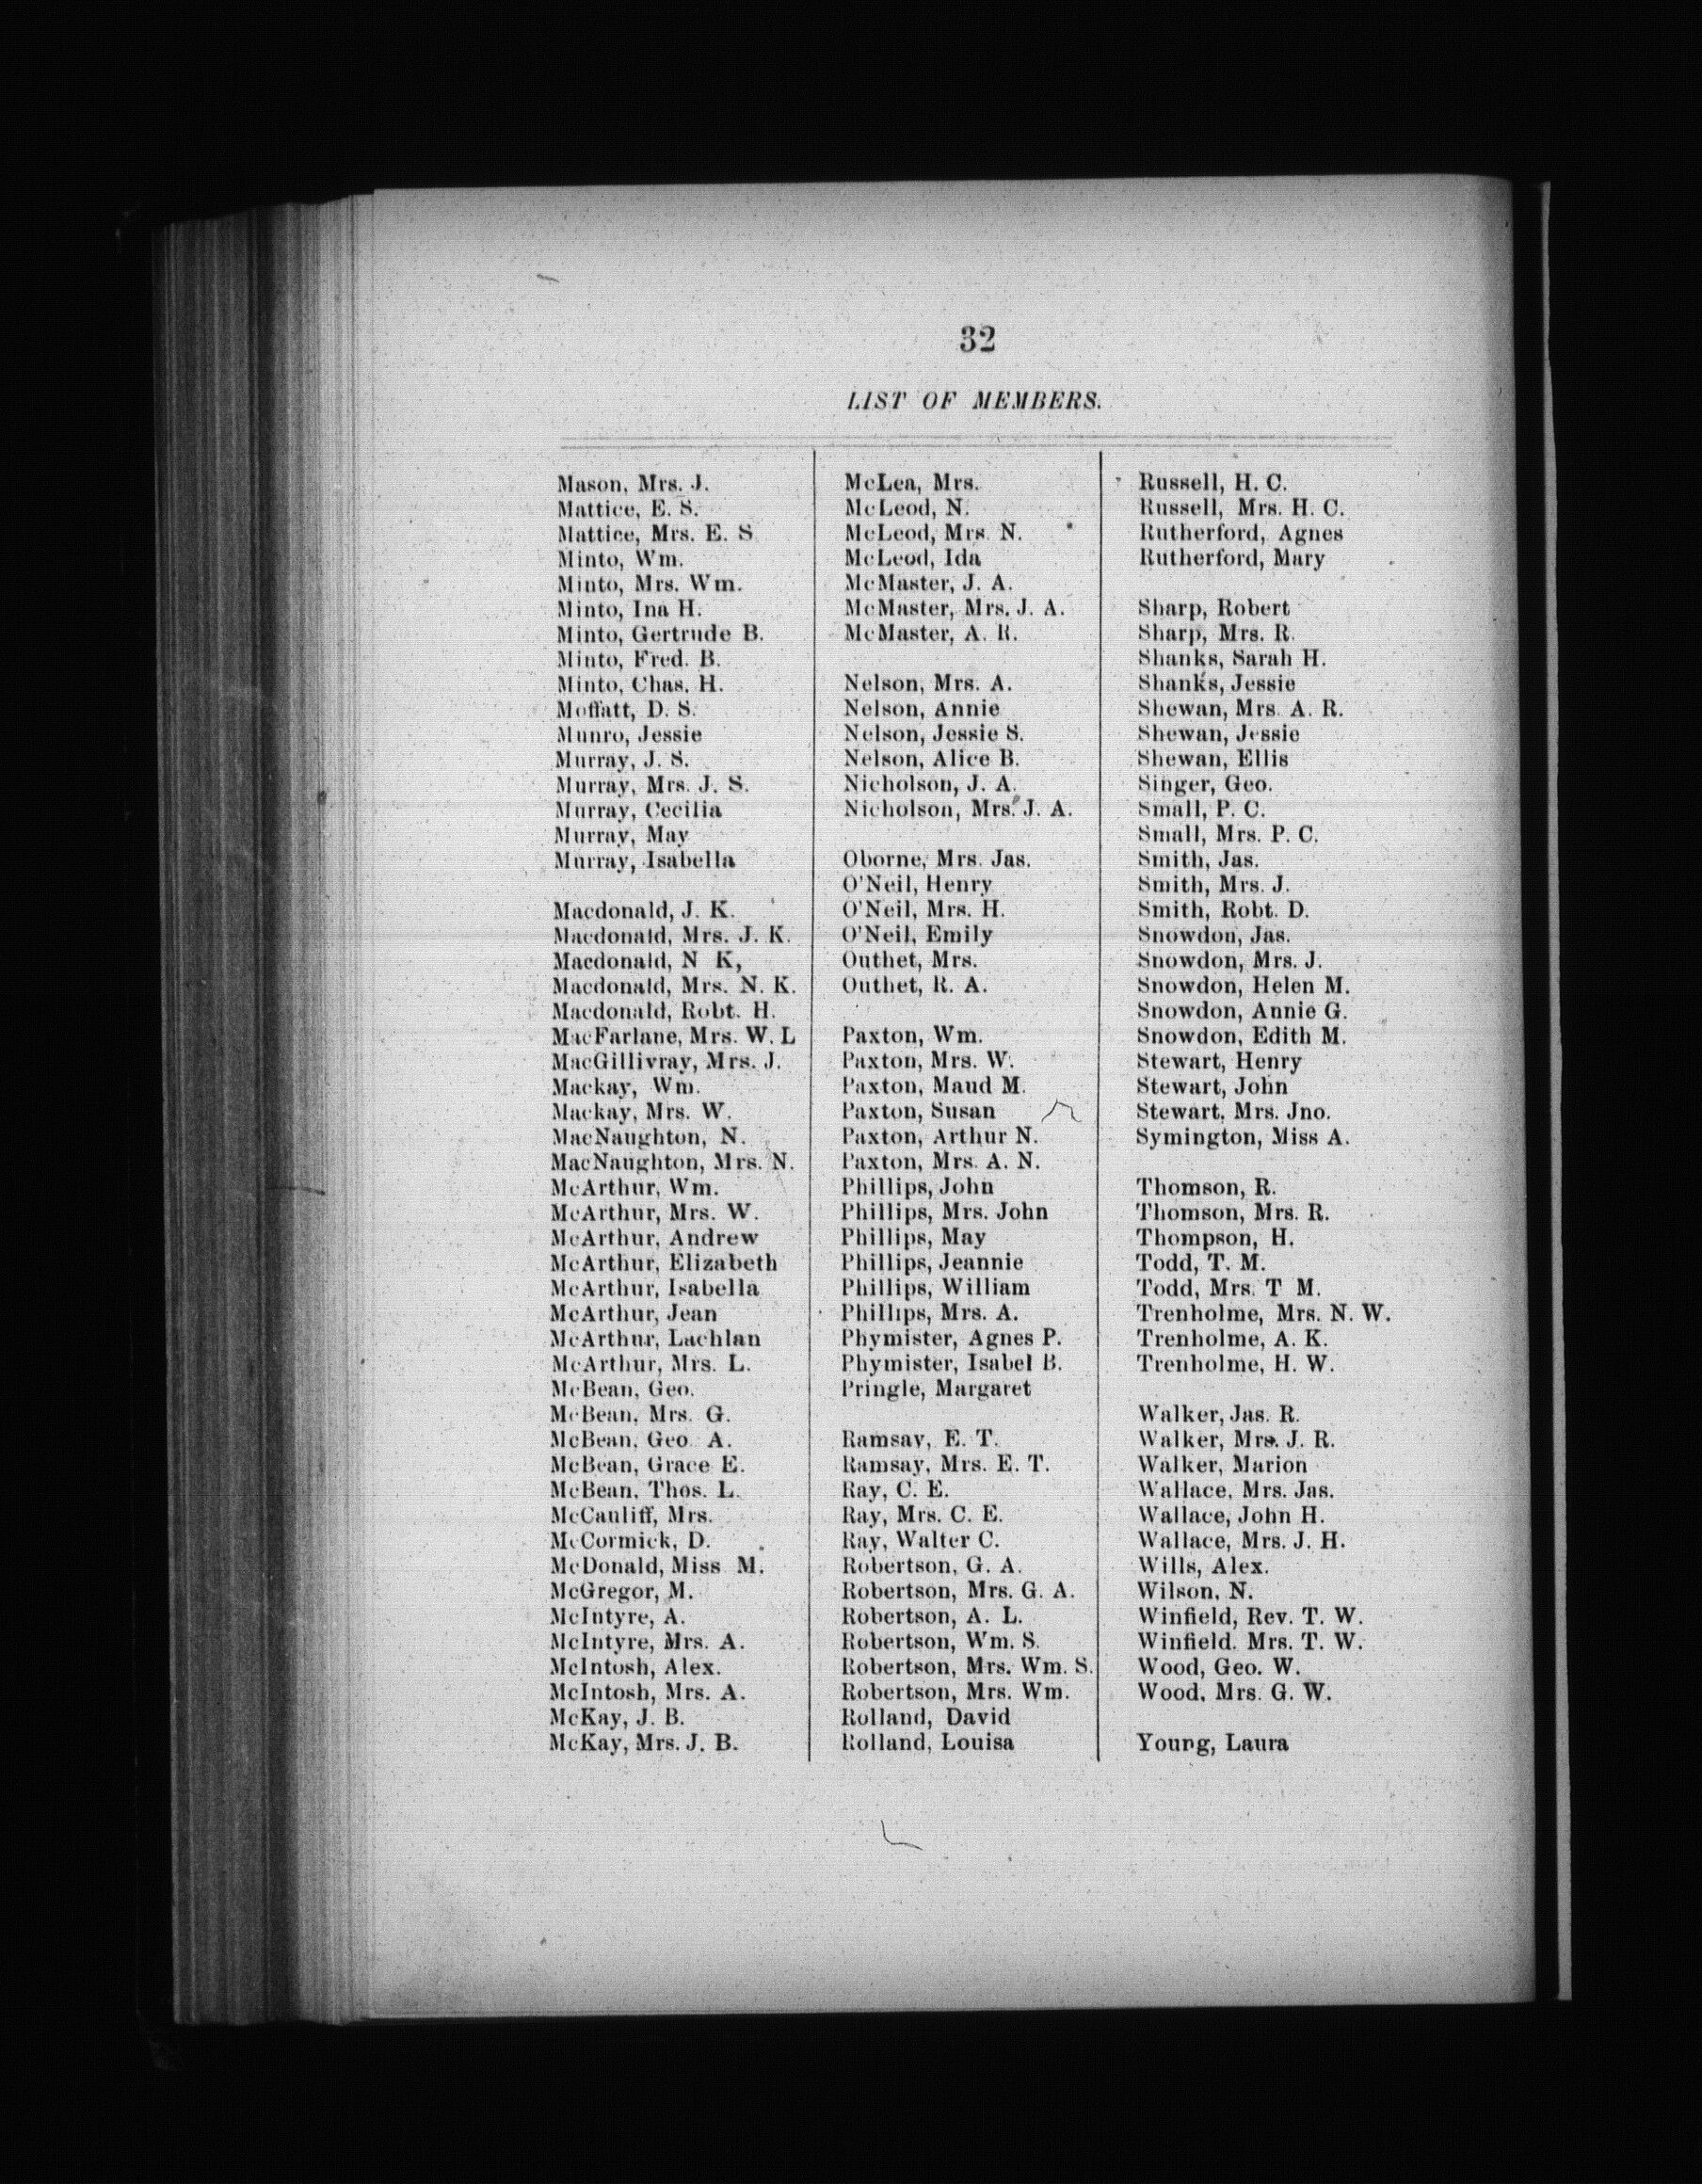 32
LIST OF MEMBERS.
Mason, Mrs. J.
Mattice, E. S.
Mattice, Mrs. E. S
Minto, Wm.
Minto, Mrs. Wm.
Minto, Ina H.
Minto, Gertrude B.
Minto, Fred. B.
Minto, Chas. H.
Moffatt, D. S.
Munro, Jessie
Murray, J. S.
Murray, Mrs. J. S.
Murray, Cecilia
Murray, May
Murray, Isabella
Macdonald, J. K.
Macdonald, Mrs. J. K.
Macdonald, N K,
Macdonald, Mrs. N. K.
Macdonald, Robt. H.
MacFarlane, Mrs. W. L
MacGillivray, Mrs. J.
Mackay, Wm.
Mackay, Mrs. W.
MacNaughton, N.
MacNaughton, Mrs. N.
McArthur, Wm.
McArthur, Mrs. W.
McArthur, Andrew
McArthur, Elizabeth
McArthur, Isabella
McArthur, Jean
McArthur, Lachlan
McArthur, Mrs. L.
McBean, Geo.
McBean, Mrs. G.
McBean, Geo. A.
McBean, Grace E.
McBean, Thos. L.
McCauliff, Mrs.
McCormick, D.
McDonald, Miss M.
McGregor, M.
McIntyre, A.
McIntyre, Mrs. A.
McIntosh, Alex.
McIntosh, Mrs. A.
McKay, J. B.
McKay, Mrs. J. B.
McLea, Mrs.
McLeod, N.
McLeod, Mrs. N.
McLeod, Ida
McMaster, J. A.
McMaster, Mrs. J. A.
McMaster, A. R.
Nelson, Mrs. A.
Nelson, Annie
Nelson, Jessie S.
Nelson, Alice B.
Nicholson, J. A.
Nicholson, Mrs. J. A.
Oborne, Mrs. Jas.
O'Neil, Henry
O'Neil, Mrs. H.
O'Neil, Emily
Outhet, Mrs.
Outhet, R. A.
Paxton, Wm.
Paxton, Mrs. W.
Paxton, Maud M.
Paxton, Susan
Paxton, Arthur N.
Paxton, Mrs. A. N.
Phillips, John
Phillips, Mrs. John
Phillips, May
Phillips, Jeannie
Phillips, William
Phillips, Mrs. A.
Phymister, Agnes P.
Phymister, Isabel B.
Pringle, Margaret
Ramsay, E. T.
Ramsay, Mrs. E. T.
Ray, C. E.
Ray, Mrs. C. E.
Ray, Walter C.
Robertson, G. A.
Robertson, Mrs. G. A.
Robertson, A. L.
Robertson, Wm. S.
Robertson, Mrs. Wm. S.
Robertson, Mrs. Wm.
Rolland, David
Rolland, Louisa
Russell, H. C.
Russell, Mrs. H. C.
Rutherford, Agnes
Rutherford, Mary
Sharp, Robert
Sharp, Mrs. R.
Shanks, Sarah H.
Shanks, Jessie
Shewan, Mrs. A. R.
Shewan, Jessie
Shewan, Ellis
Singer, Geo.
Small, P. C.
Small, Mrs. P. C.
Smith, Jas.
Smith, Mrs. J.
Smith, Robt. D.
Snowdon, Jas.
Snowdon, Mrs. J.
Snowdon, Helen M.
Snowdon, Annie G.
Snowdon, Edith M.
Stewart, Henry
Stewart, John
Stewart, Mrs. Jno.
Symington, Miss A.
Thomson, R.
Thomson, Mrs. R.
Thompson, H.
Todd, T. M.
Todd, Mrs. T M.
Trenholme, Mrs. N. W.
Trenholme, A. K.
Trenholme, H. W.
Walker, Jas. R.
Walker, Mrs. J. R.
Walker, Marion
Wallace, Mrs. Jas.
Wallace, John H.
Wallace, Mrs. J. H.
Wills, Alex.
Wilson, N.
Winfield, Rev. T. W.
Winfield. Mrs. T. W.
Wood, Geo. W.
Wood, Mrs. G. W.
Young, Laura